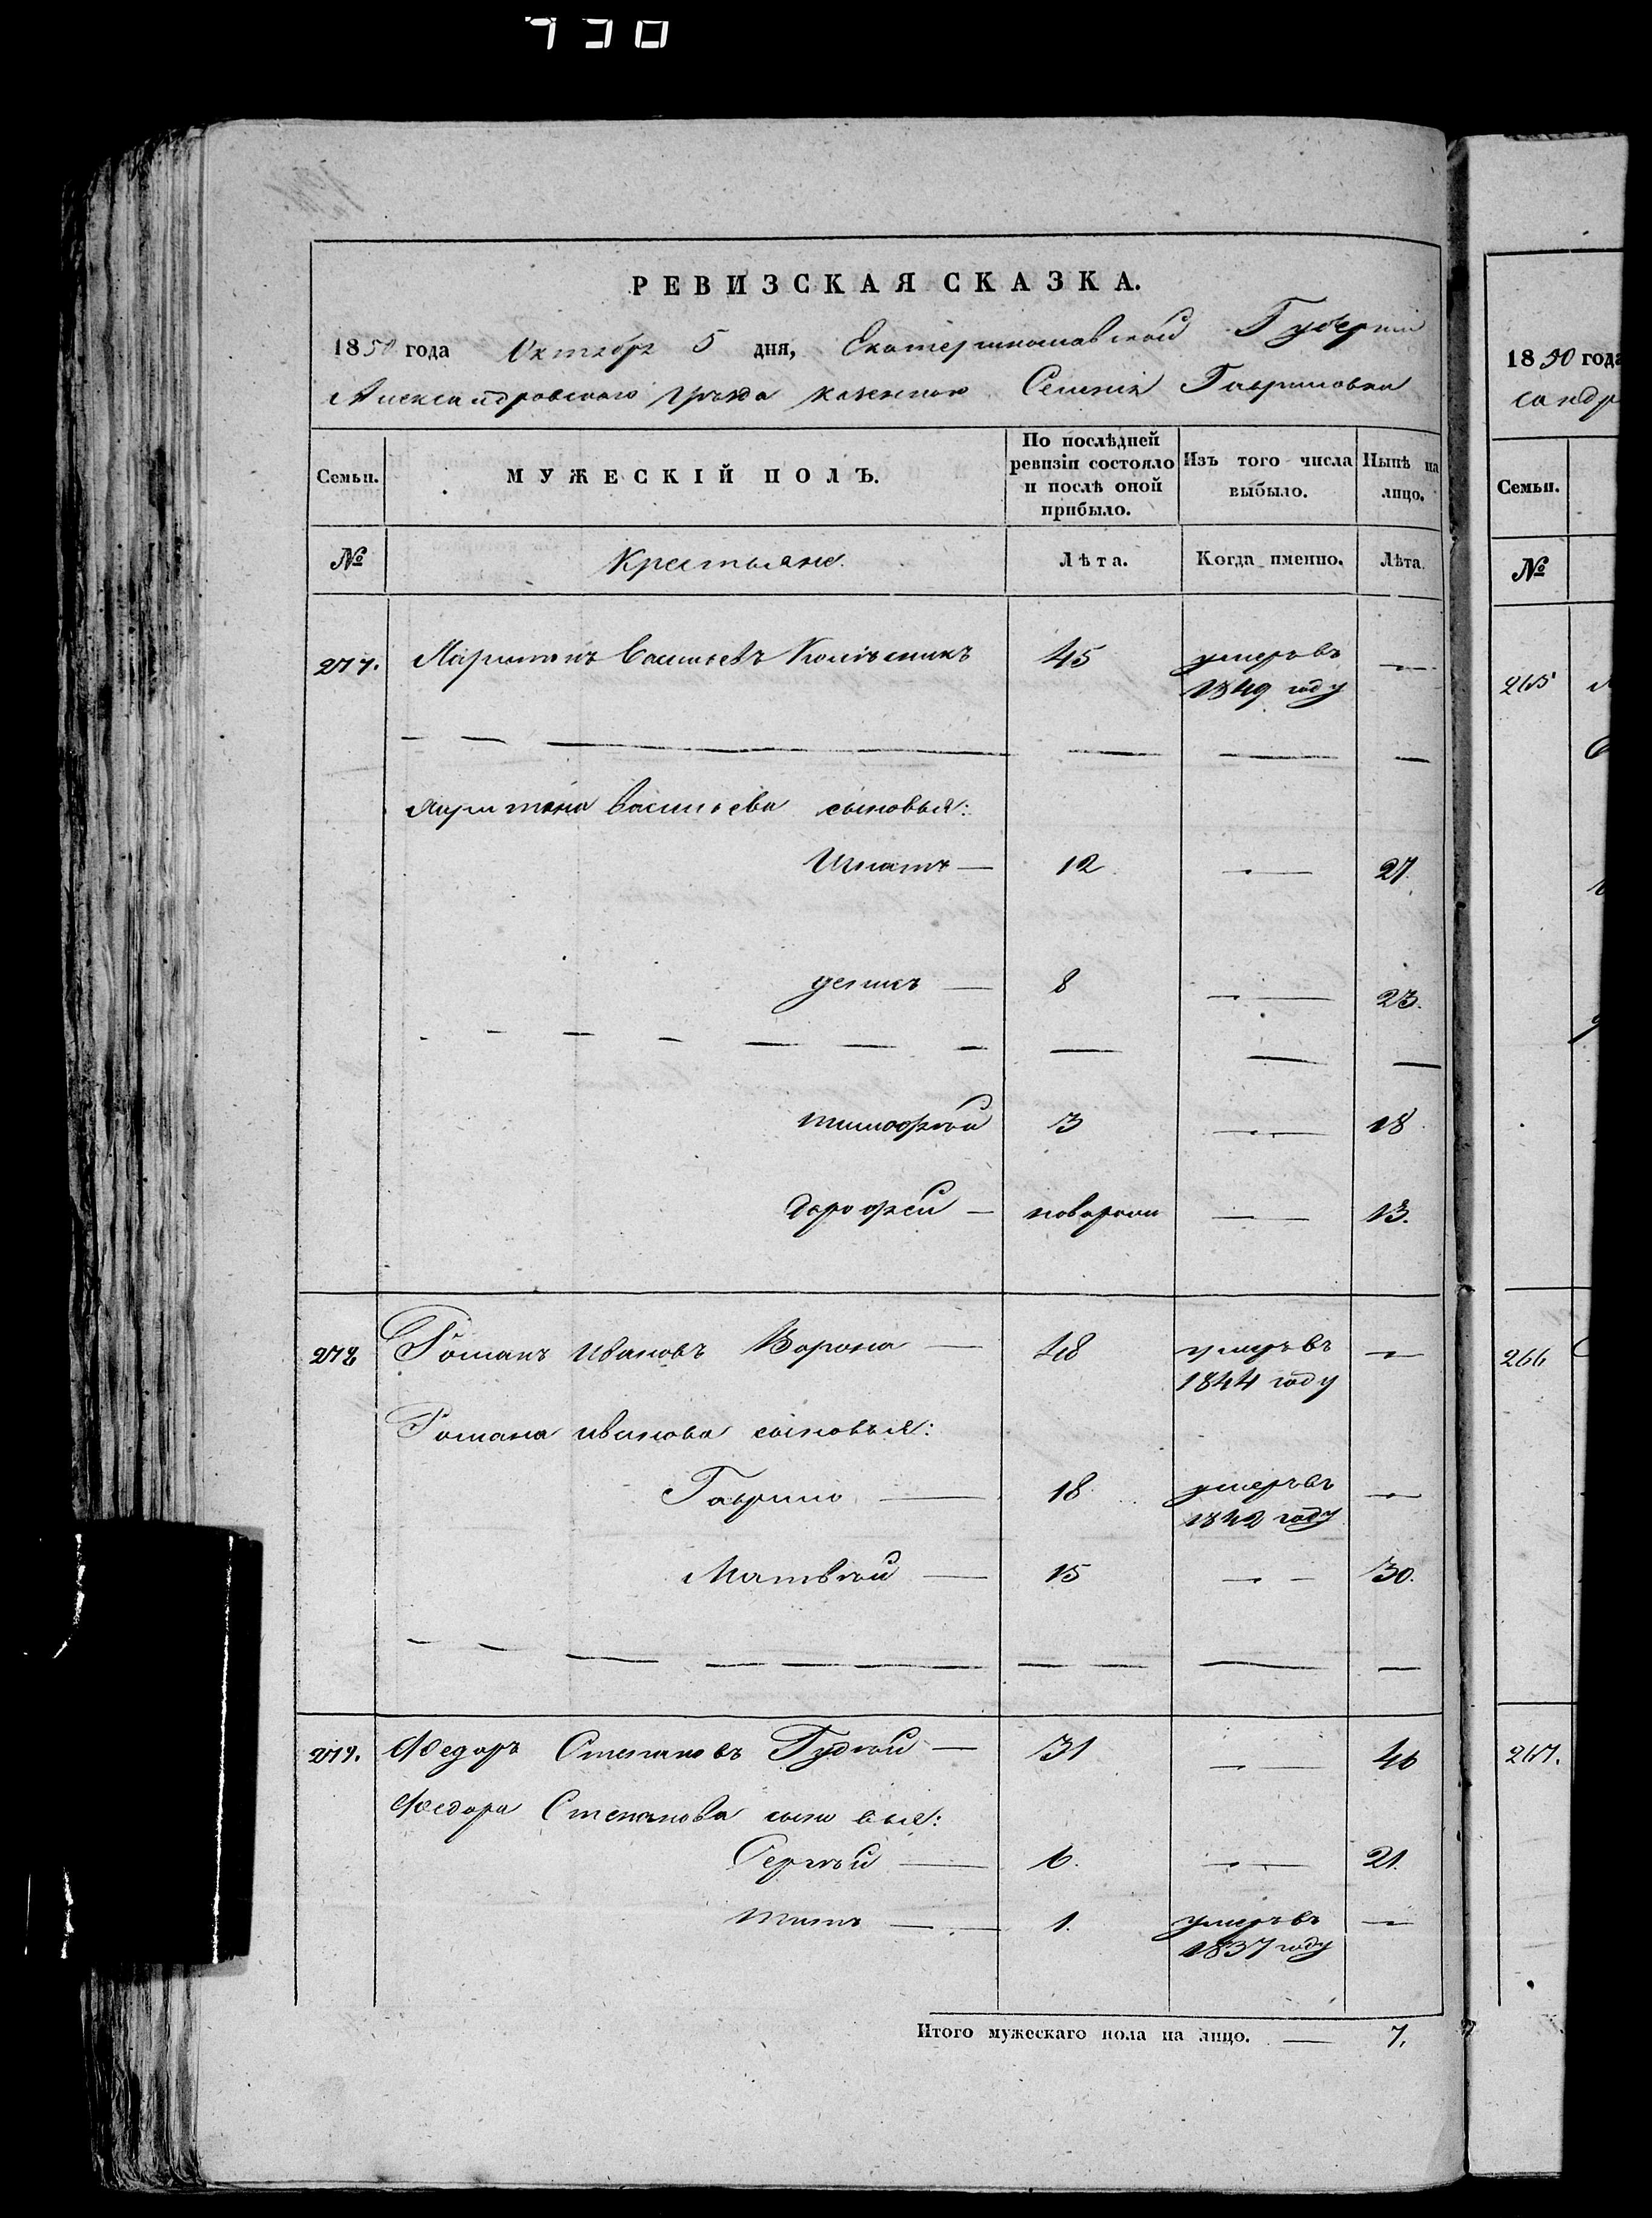 930
РЕВИЗСКАЯ СКАЗКА.
1850 года Октября 5 дня, Екатеринославской Губернии
Александровского уѣзда казенного Селенія Гавриловки
Семьи. МУЖЕСКІЙ ПОЛЪ. По послѣдней ревизіи состояло и послѣ оной прибыло. Изъ того числа выбыло. Нынѣ на лицо.
№ Крестьяне. Лѣта. Когда именно. Лѣта.
277. Харитонъ Васильевъ Колѣсникъ 45 умеръ въ 1849 году —
Харитона Васильева сыновья:
Игнатъ — 12 — 27.
Денисъ — 8 — 23.
Тимофѣй 3 — 18
Дорофей — новорожд — 13.
278 Романъ Ивановъ Ворона — 48 умеръ въ 1844 году —
Романа Иванова сыновья:
Гаврило — 18 умеръ въ 1842 году —
Матвѣй — 15 — 30.
279. Федоръ Степановъ Гудзѣй — 31 — 46
Федора Степанова сыновья:
Сергѣй — 6. — 21.
Титъ — 1. умеръ въ 1837 году —
Итого мужескаго пола на лицо. — 7.
1850 года
сандр
Семьи.
№
265
266
267.